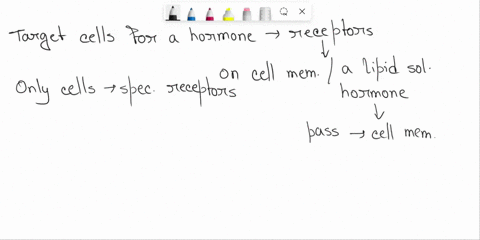 Target cells for a hormone → receptors
↓
On cell mem. / a lipid sol.
Only cells → spec. receptors
hormone
↓
pass → cell mem.